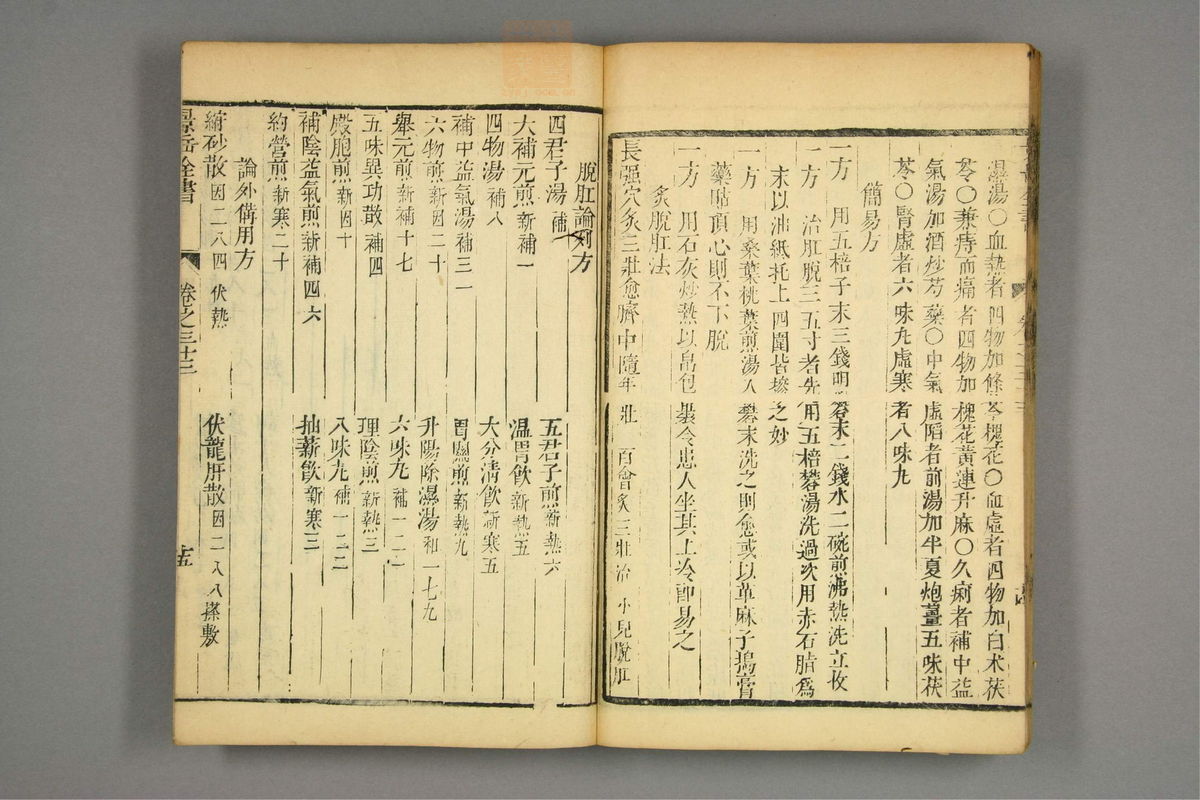 濕湯○血熱者四物加條芩槐花○血虛者四物加白术茯
苓○兼痔而痛者四物加槐花黃連升麻○久痢者補中益
氣湯加酒炒芍藥○中氣虛陷者前湯加半夏炮薑五味茯
苓○腎虛者六味丸虛寒者八味丸
簡易方
一方 用五棓子末三錢明礬末二錢水二碗煎沸熱洗立收
一方 治肛脫三五寸者先用五棓礬湯洗過次用赤石脂爲
末以油紙托上四圍皆摻之妙
一方 用桑葉桃葉煎湯入礬末洗之則愈或以萆麻子搗膏
藥貼頂心則不下脫
一方 用石灰炒熱以帛包裹令患人坐其上冷即易之
炙脫肛法
長强穴炙三壯愈臍中隨年壯 百會炙三壯治小兒脫肛
脫肛論列方
四君子湯補一 五君子煎新熱六
大補元煎新補一 溫胃飲新熱五
四物湯補八 大分清飲新寒五
補中益氣湯補三一 胃關煎新熱九
六物煎新因二十 升陽除濕湯和一七九
舉元煎新補十七 六味丸補一二一
五味異功散補四 理陰煎新熱三
殿胞煎新因十 八味丸補一二二
補陰益氣煎新補四六 抽薪飲新寒三
約營煎新寒二十
論外備用方
縮砂散因二八四 伏熱 伏龍肝散因二八八搽敷
景岳全書 卷之三十三 十五